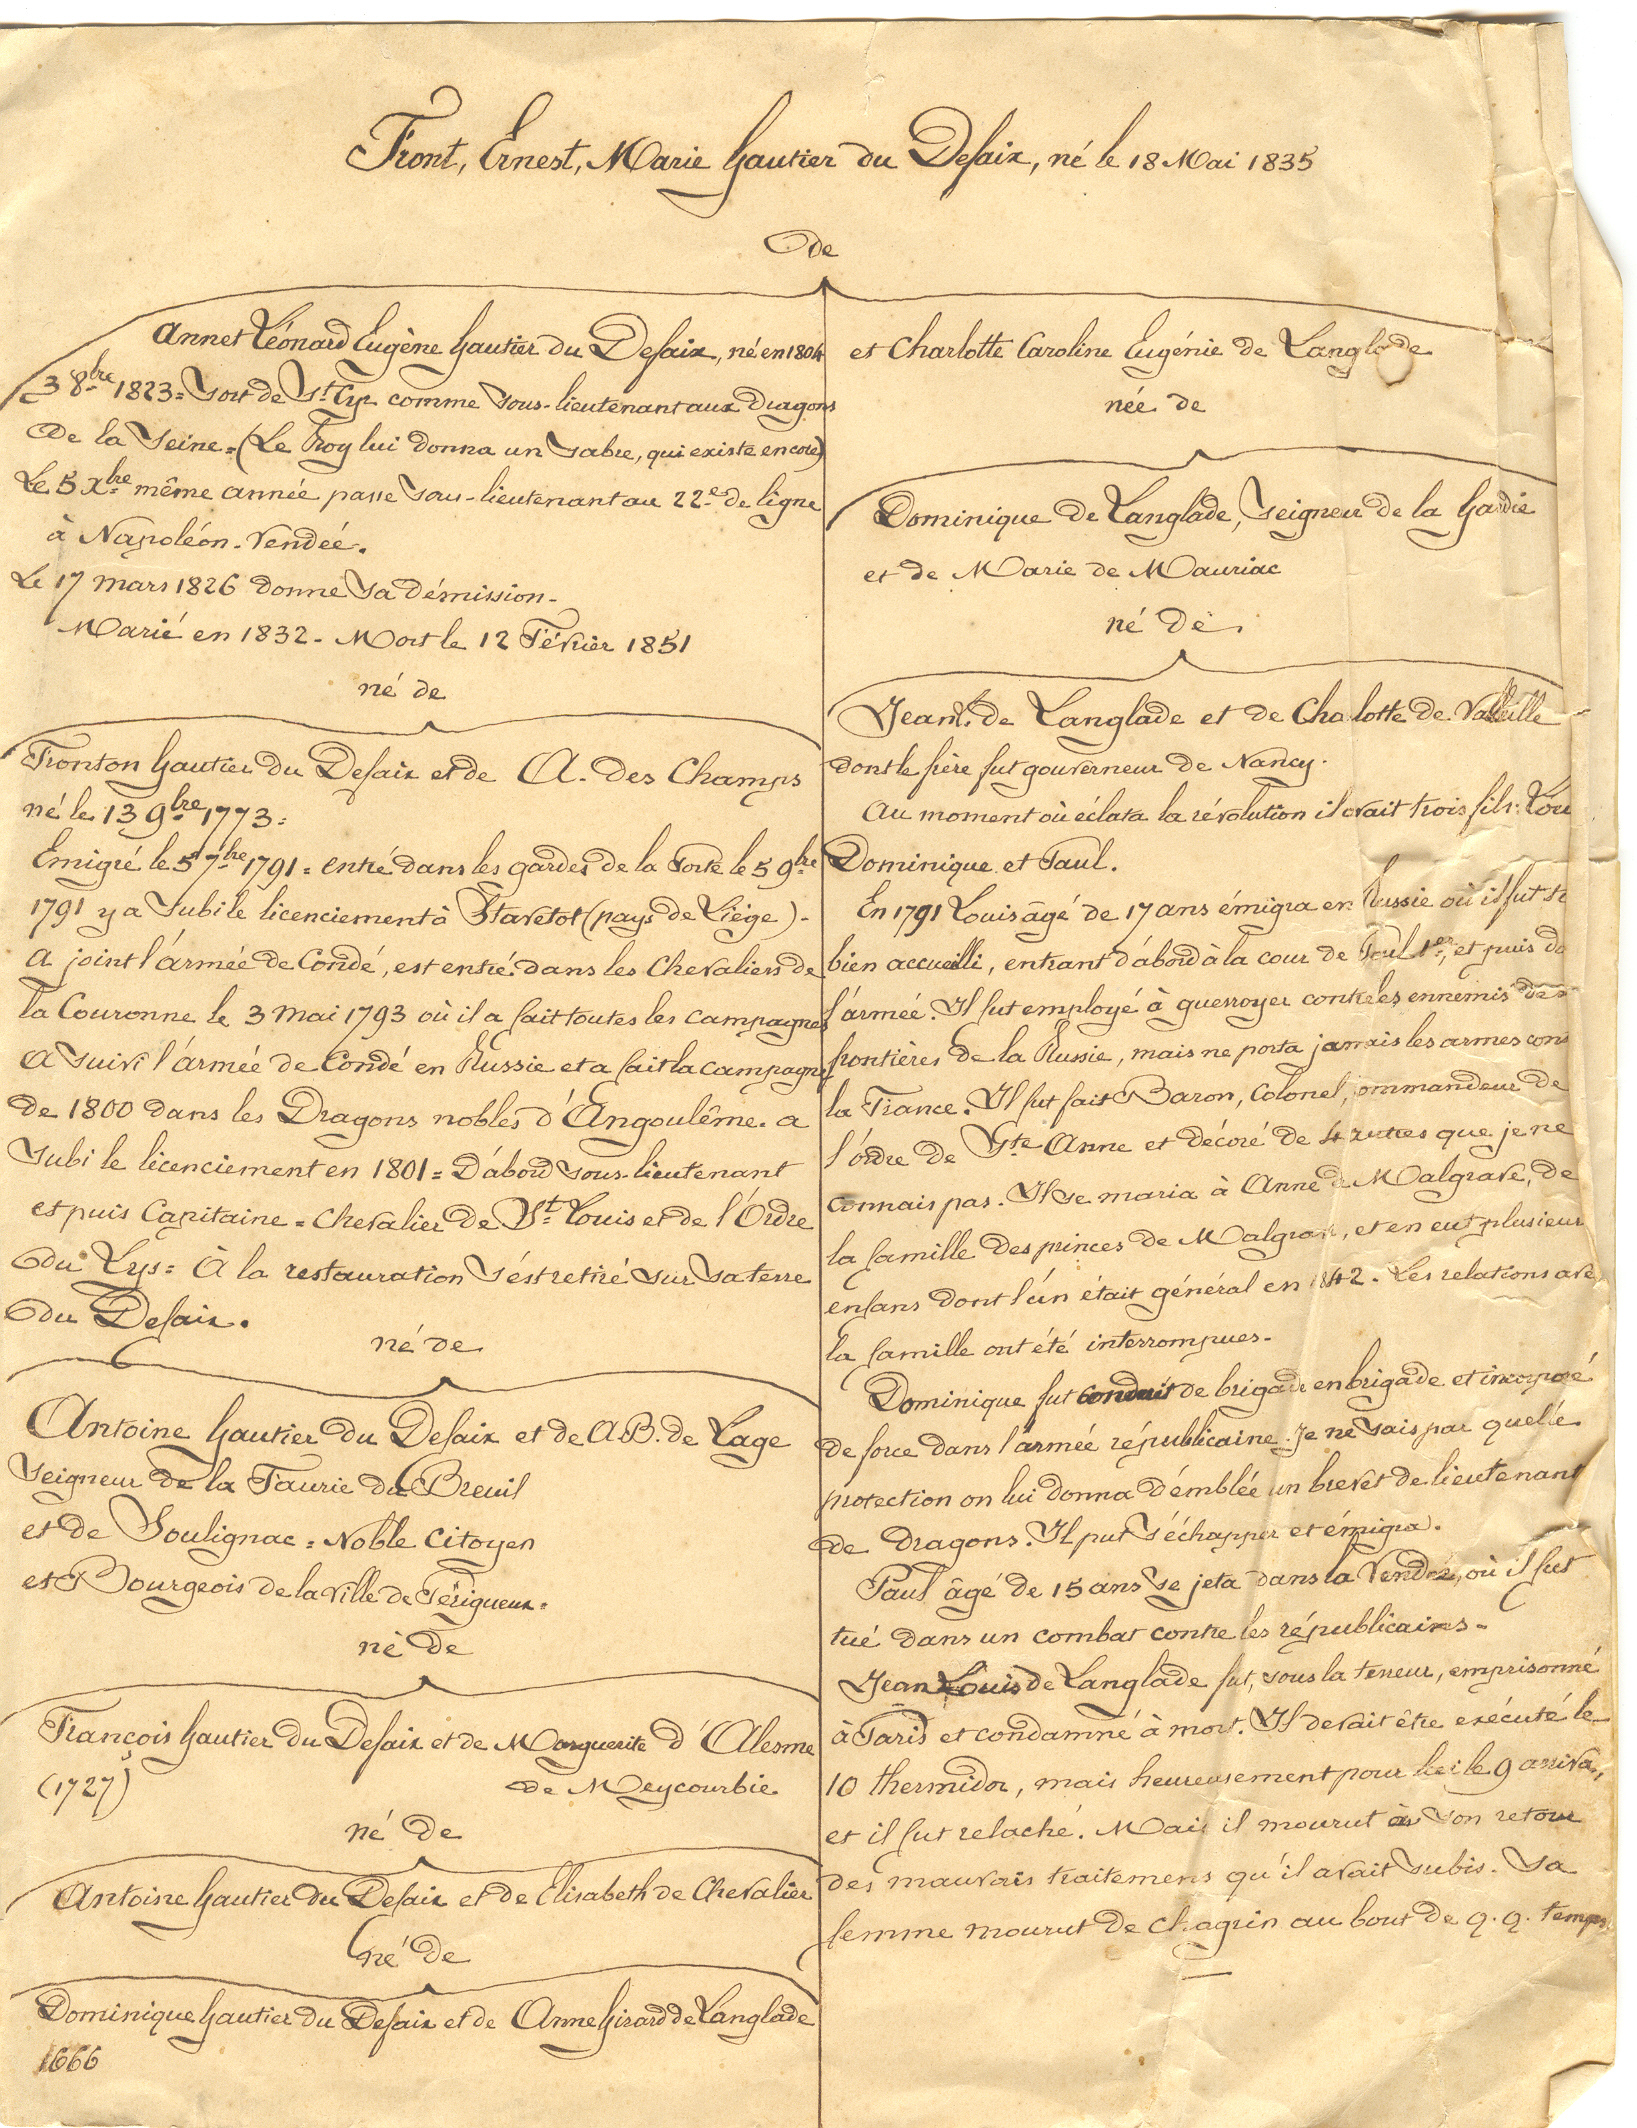 Front, Ernest, Marie Gautier du Desaix, né le 18 Mai 1835
de
Annet Léonard Eugène Gautier du Desaix, né en 1804
3 8bre 1823 = Sort de St Cyr comme sous-lieutenant aux dragons
de la Seine = (Le Roy lui donna un sabre, qui existe encore)
Le 5 Xbre même année passe sous-lieutenant au 22e de ligne
à Napoléon-Vendée.
Le 17 mars 1826 donne sa démission -
Marié en 1832 - Mort le 12 Février 1851
né de
Fronton Gautier du Desaix et de A. des Champs
né le 13 9bre 1773 =
Emigré le 5 7bre 1791 = entré dans les gardes de la Porte le 5 9bre
1791 y a subi le licenciement à Stavelot (pays de Liège) -
a joint l'armée de Condé, est entré dans les Chevaliers de
la Couronne le 3 Mai 1793 où il a fait toutes les campagnes
a suivi l'armée de Condé en Russie et a fait la campagne
de 1800 dans les Dragons nobles d'Angoulême. a
subi le licenciement en 1801 = D'abord sous-lieutenant
et puis Capitaine = Chevalier de St Louis et de l'Ordre
du Lys = À la restauration s'est retiré sur sa terre
du Desaix.
né de
Antoine Gautier du Desaix et de A.B. de Lage
Seigneur de la Faurie du Breuil
et de Soulignac = Noble Citoyen
et Bourgeois de la ville de Périgueux =
né de
François Gautier du Desaix et de Marguerite d'Alesme
(1727) de Meycourbie
né de
Antoine Gautier du Desaix et de Elisabeth de Chevalier
né de
Dominique Gautier du Desaix et de Anne Girard de Langlade
1666
et Charlotte Caroline Eugénie de Langlade
née de
Dominique de Langlade, Seigneur de la Gardie
et de Marie de Mauriac
né de
Jean L. de Langlade et de Charlotte de Valleille
dont le frère fut gouverneur de Nancy.
Au moment où éclata la révolution il avait trois fils: Lou
Dominique et Paul.
En 1791 Louis âgé de 17 ans émigra en Russie où il fut
bien accueilli, entrant d'abord à la cour de Paul 1er, et puis da
l'armée. Il fut employé à guerroyer contre les ennemis des
frontières de la Russie, mais ne porta jamais les armes cont
la France. Il fut fait Baron, Colonel, ommandeur de
l'ordre de Ste-Anne et décoré de 4 autres que je ne
connais pas. Il se maria à Anne de Malgrave, de
la famille des princes de Malgrave, et en eut plusieurs
enfans dont l'un était général en 1842. Les relations ave
la famille ont été interrompues.
Dominique fut conduit de brigade en brigade et incorporé
de force dans l'armée républicaine. Je ne sais par quelle
protection on lui donna d'emblée un brevet de lieutenant
de dragons. Il put s'échapper et émigra.
Paul âgé de 15 ans se jeta dans la Vendée, où il fut
tué dans un combat contre les républicains -
Jean Louis de Langlade fut, sous la terreur, emprisonné
à Paris et condamné à mort. Il devait être exécuté le
10 thermidor, mais heureusement pour lui le 9 arriva,
et il fut relaché. Mais il mourut à son retour
des mauvais traitemens qu'il avait subis. Sa
femme mourut de chagrin au bout de q. q. temps.